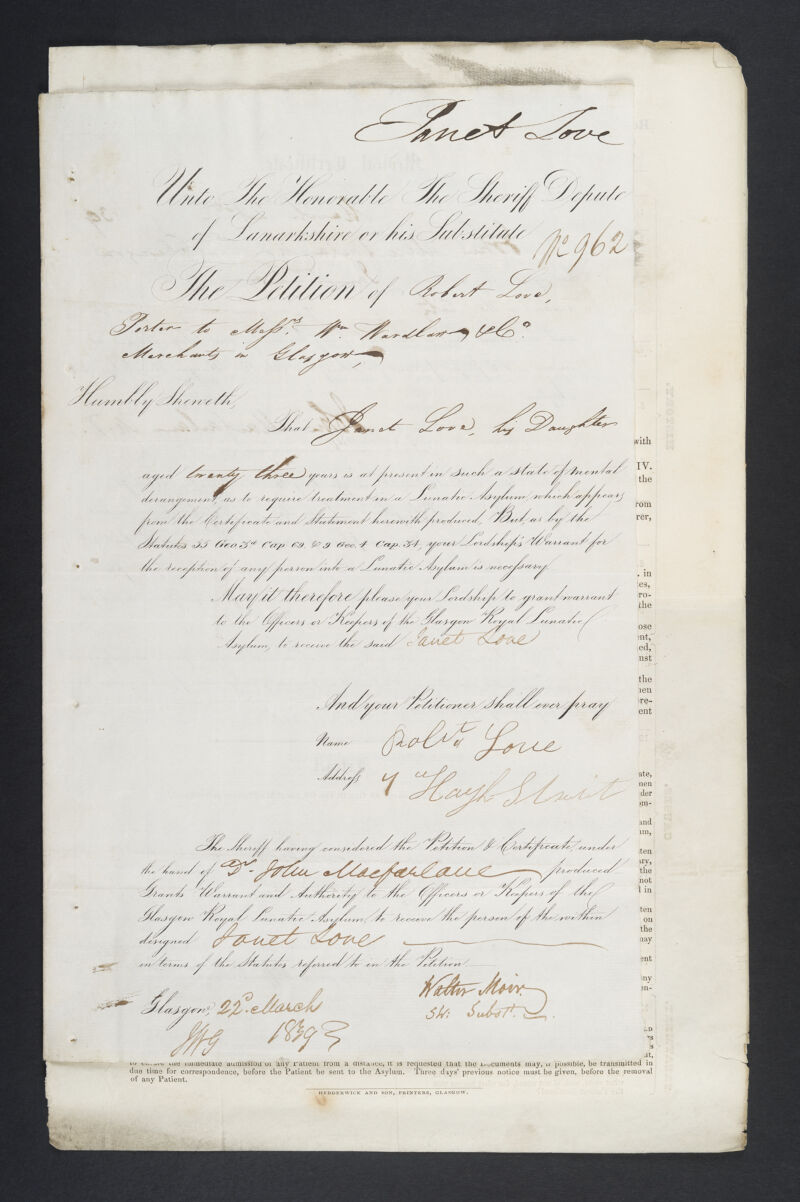 Janet Love
Unto The Honorable The Sheriff Depute
of Lanarkshire or his Substitute
No 962
The Petition of Robert Love,
Porter to Messrs. Wm. Wardlaw & Co.
Merchants in Glasgow,
Humbly Sheweth,
That Janet Love, his Daughter
aged twenty three years is at present in such a state of mental
derangement, as to require treatment in a Lunatic Asylum, which appears
from the Certificate and Statement herewith produced, But, as by the
Statutes 55 Geo. 3d Cap. 69. & 9 Geo. 4 Cap. 34, your Lordship's Warrant for
the reception of any person into a Lunatic Asylum is necessary.
May it therefore please your Lordship to grant warrant
to the Officers or Keepers of the Glasgow Royal Lunatic
Asylum, to receive the said Janet Love
And your Petitioner shall ever pray
Name Robt Love
Address 7 Street
The Sheriff having considered the Petition & Certificate under
the hand of Dr. John Macfarlane produced
Grants Warrant and Authority to the Officers or Keepers of the
Glasgow Royal Lunatic Asylum, to receive the person of the within
designed Janet Love
in terms of the Statutes referred to in the Petition
Glasgow, 22d. March
1839
Walter Moir
Sh: Subst.
with
IV.
the
from
rer,
in
the
ent,
ed,
the
ent
ate,
der
and
the
not
in
on
the
may
ent
immediate admission of any Patient from a distance, it is requested that the Documents may, if possible, be transmitted in
due time for correspondence, before the Patient be sent to the Asylum. Three days' previous notice must be given, before the removal
of any Patient.
HEDDERWICK AND SON, PRINTERS, GLASGOW.